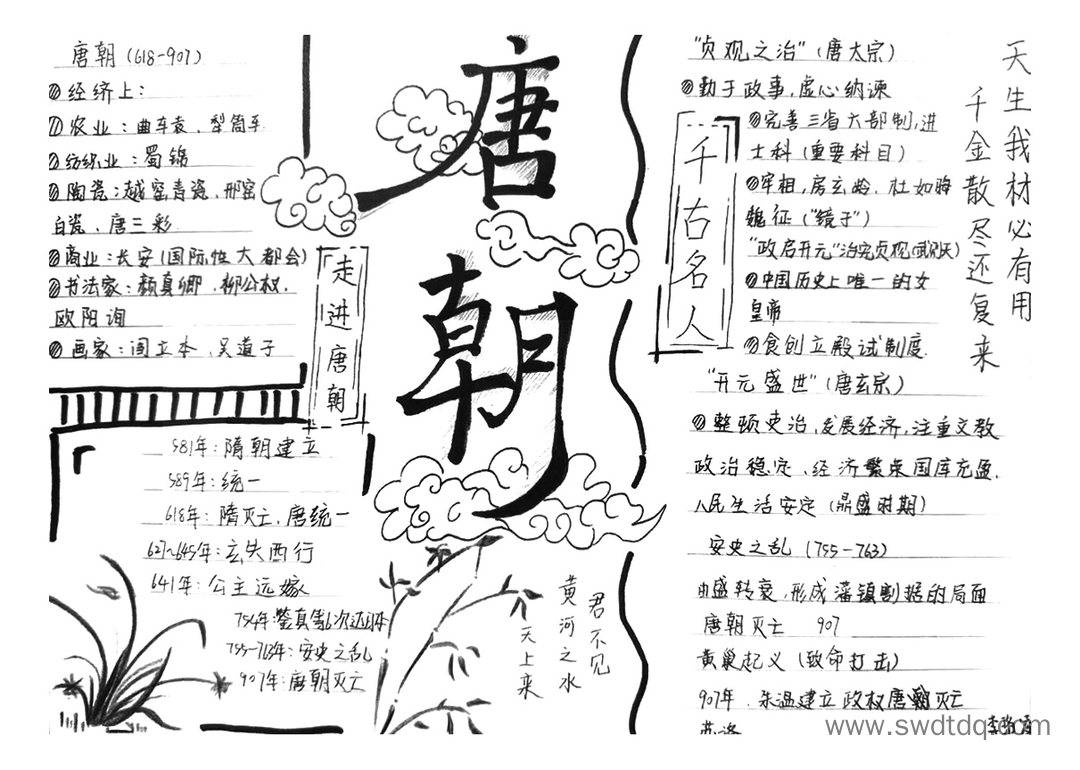 唐朝(618-907)
经济上:
农业:曲车袁、犁筒车
纺织业:蜀锦
陶瓷:越窑青瓷,邢窑
白瓷、唐三彩
商业:长安(国际性大都会)
书法家:颜真卿、柳公权、
欧阳询
画家:阎立本、吴道子
走进唐朝
581年:隋朝建立
589年:统一
618年:隋灭亡,唐统一
627~645年:玄失西行
641年:公主远嫁
754年:鉴真第6次还日本
755-763年:安史之乱
907年:唐朝灭亡
唐朝
君不见
黄河之水
天上来
"贞观之治"(唐太宗)
勤于政事,虚心纳谏
千古名人
完善三省六部制,进
士科(重要科目)
宰相,房玄龄、杜如晦
魏征("镜子")
"政启开元"治宏贞观(武则天)
中国历史上唯一的女
皇帝
食创立殿试制度
"开元盛世"(唐玄宗)
整顿吏治,发展经济,注重文教
政治稳定、经济繁荣国库充盈,
人民生活安定(鼎盛时期)
安史之乱(755-763)
由盛转衰,形成藩镇割据的局面
唐朝灭亡 907
黄巢起义(致命打击)
907年、朱温建立政权唐朝灭亡
天生我材必有用
千金散尽还复来
www.swdtdq.com